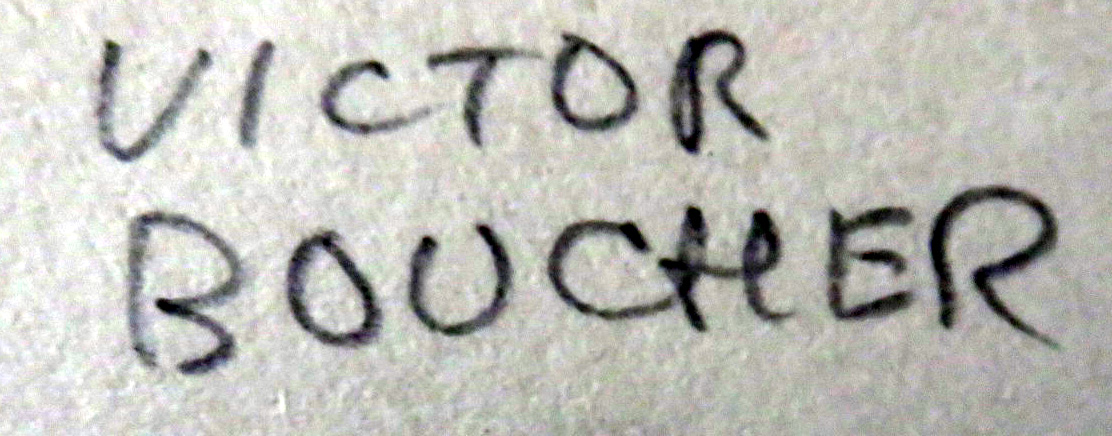 VICTOR
BOUCHER